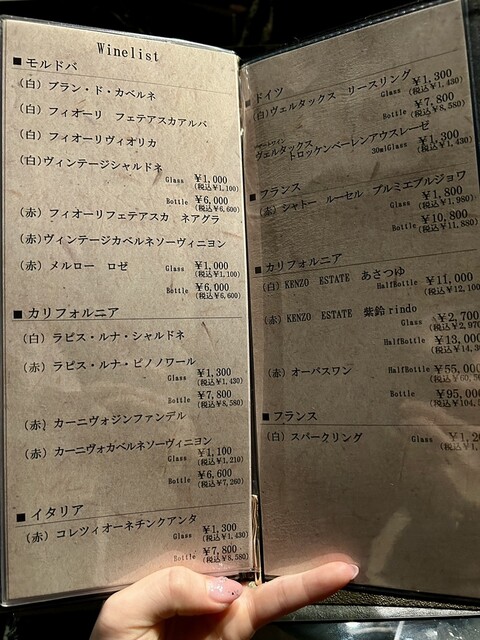 Winelist
■モルドバ
(白) ブラン・ド・カベルネ
(白) フィオーリ フェテアスカアルバ
(白) フィオーリヴィオリカ
(白)ヴィンテージシャルドネ
Glass ¥1,000
(税込¥1,100)
Bottle ¥6,000
(税込¥6,600)
(赤) フィオーリフェテアスカ ネアグラ
(赤)ヴィンテージカベルネソーヴィニヨン
(赤) メルロー ロゼ Glass ¥1,000
(税込¥1,100)
Bottle ¥6,000
(税込¥6,600)
■カリフォルニア
(白) ラピス・ルナ・シャルドネ
(赤) ラピス・ルナ・ピノノワール
Glass ¥1,300
(税込¥1,430)
Bottle ¥7,800
(税込¥8,580)
(赤) カーニヴォジンファンデル
(赤) カーニヴォカベルネソーヴィニヨン
Glass ¥1,100
(税込¥1,210)
Bottle ¥6,600
(税込¥7,260)
■イタリア
(赤) コレツィオーネチンクアンタ
Glass ¥1,300
(税込¥1,430)
Bottle ¥7,800
(税込¥8,580)
■ドイツ
(白)ヴェルタックス リースリング
Glass ¥1,300
(税込¥1,430)
Bottle ¥7,800
(税込¥8,580)
ヴェルタックス
トロッケンベーレンアウスレーゼ
30mlGlass ¥1,300
(税込¥1,430)
■フランス
(赤) シャトー ルーセル プルミエブルジョワ
Glass ¥1,800
(税込¥1,980)
Bottle ¥10,800
(税込¥11,880)
■カリフォルニア
(白) KENZO ESTATE あさつゆ
HalfBottle ¥11,000
(税込¥12,100
(赤) KENZO ESTATE 紫鈴rindo
Glass ¥2,700
(税込¥2,970
HalfBottle ¥13,000
(税込¥14,3
(赤) オーパスワン HalfBottle ¥55,000
(税込¥60,5
Bottle ¥95,000
(税込¥104,5
■フランス
(白) スパークリング Glass ¥1,2
(税込¥1,